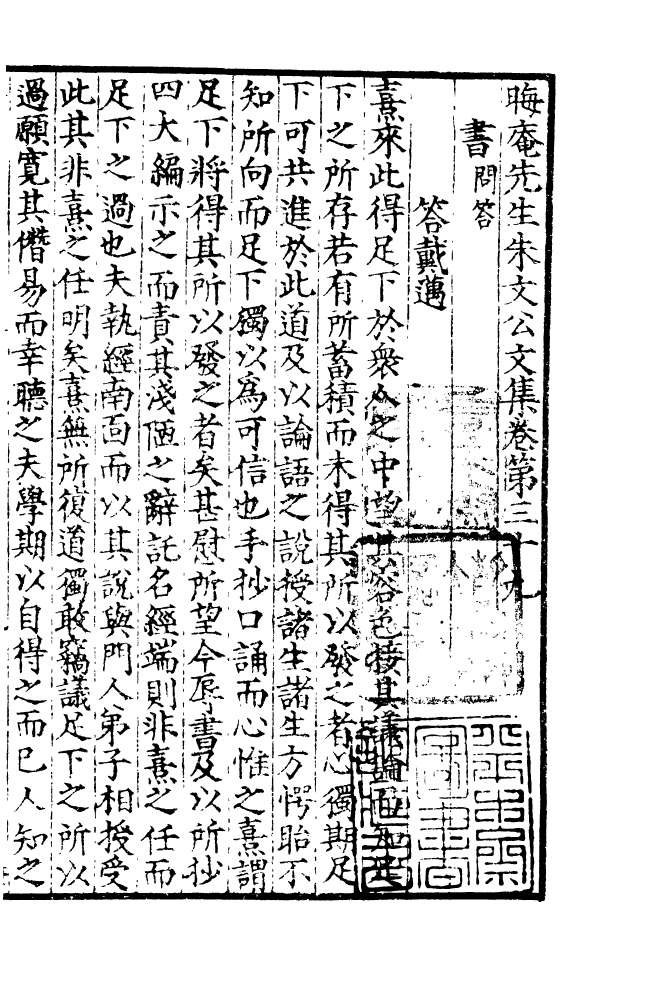 晦庵先生朱文公文集卷第三十九
書問答
答戴邁
熹來此得足下於衆人之中望其容色接其議論而知足
下之所存若有所蓄積而未得其所以發之者心獨期足
下可共進於此道及以論語之說授諸生諸生方愕眙不
知所向而足下獨以為可信也手抄口誦而心惟之熹謂
足下將得其所以發之者矣甚慰所望今辱書及以所抄
四大編示之而責其淺陋之辭託名經端則非熹之任而
足下之過也夫執經南面而以其說與門人弟子相授受
此其非熹之任明矣熹無所復道獨敢竊議足下之所以
過願寬其僭易而幸聽之夫學期以自得之而已人知之